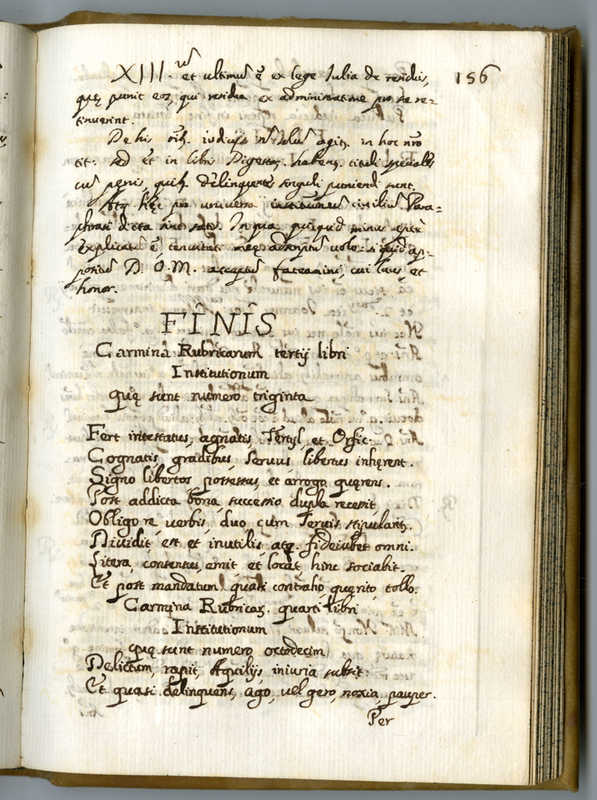 156
XIII. et ultimũ ẽ ex lege Iulia de residuis,
quę punit eos, qui residua ex administratione pro se re=
tinuerint.
De his oĩb. iudicijs nõ solũ agit. in hoc nro
tit: sed et in libris Digestor. habens. tituli speciales
cũ penis, quib. delinquentes singuli puniendi sunt.
Atq. hęc pro universa institutionũ civiliũ Para=
phrasi dicta sint satis. In qua quicquid minus
explicatũ ẽ tenuitati meę adscriptũ volo: siquid ap=
positũ D. O. M. acceptũ fateamini, cui laus, et
honor.
FINIS
Carmina Rubricarum tertij libri
Institutionum
quę sunt numero triginta
Fert intestatus, agnatis, Tertyl, et Orfic:
Cognatis gradibus, servus libertus inhęrent.
Signo libertos possessus, et arrogo quęrens.
Post addicta bona, successio dupla recessit
Obligo re verbis, duo, cum servis stipulant.
Dividit, est et inutilis atq. fideiubet omni.
Litera, contentu, emit et locat, hinc sociabit.
Et post mandatum, quasi contraho quęrito, tollo.
Carmina Rubricar. quarti libri
Institutionum
quę sunt numero octodecim
Delictum, rapit, Aquilijs, iniuria subsit
Et quasi delinquens, ago, vel gero, noxia, pauper.
Per